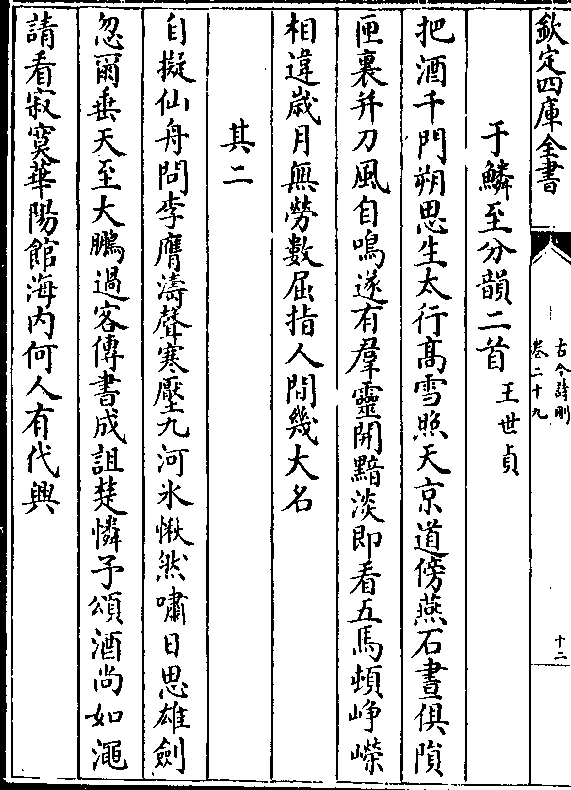 欽定四庫全書
古今詩刪
卷二十九
十二
于鱗至分韻二首
王世貞
把酒千門朔思生太行高雪照天京道傍燕石晝俱隕
匣裏并刀風自鳴遂有羣靈開黯淡即看五馬頓崢嶸
相違嵗月無勞數屈指人間幾大名
其二
自擬仙舟問李膺濤聲寒壓九河氷愀然嘯日思雄劍
忽爾垂天至大鵬過客傳書成詛楚憐予頌酒尚如澠
請看寂寞華陽館海内何人有代興